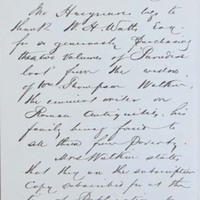 Mr Hargreaves begs to
thank W. H. Watts Esq.
for so generously purchasing
the two volumes of Paradise
Lost from the widow
of Wm Thompson Watkin
the eminent writer on
Roman Antiquities, his
family being forced to
sell them from Poverty.
Mrs Watkin states,
that they are the subscription
Copy subscribed for at the